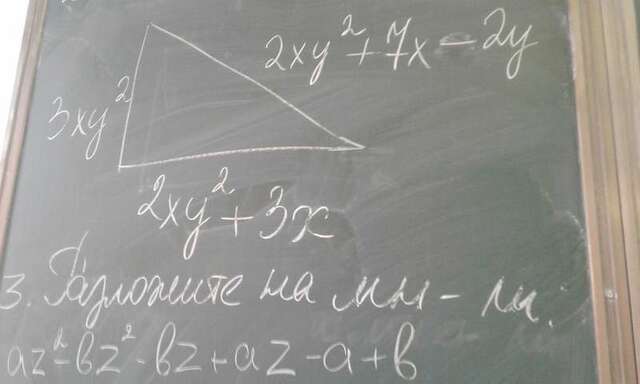 2xy²+7x-2y
3xy²
2xy²+3x
3. Разложите на мн-ли:
az²-bz²-bz+az-a+b